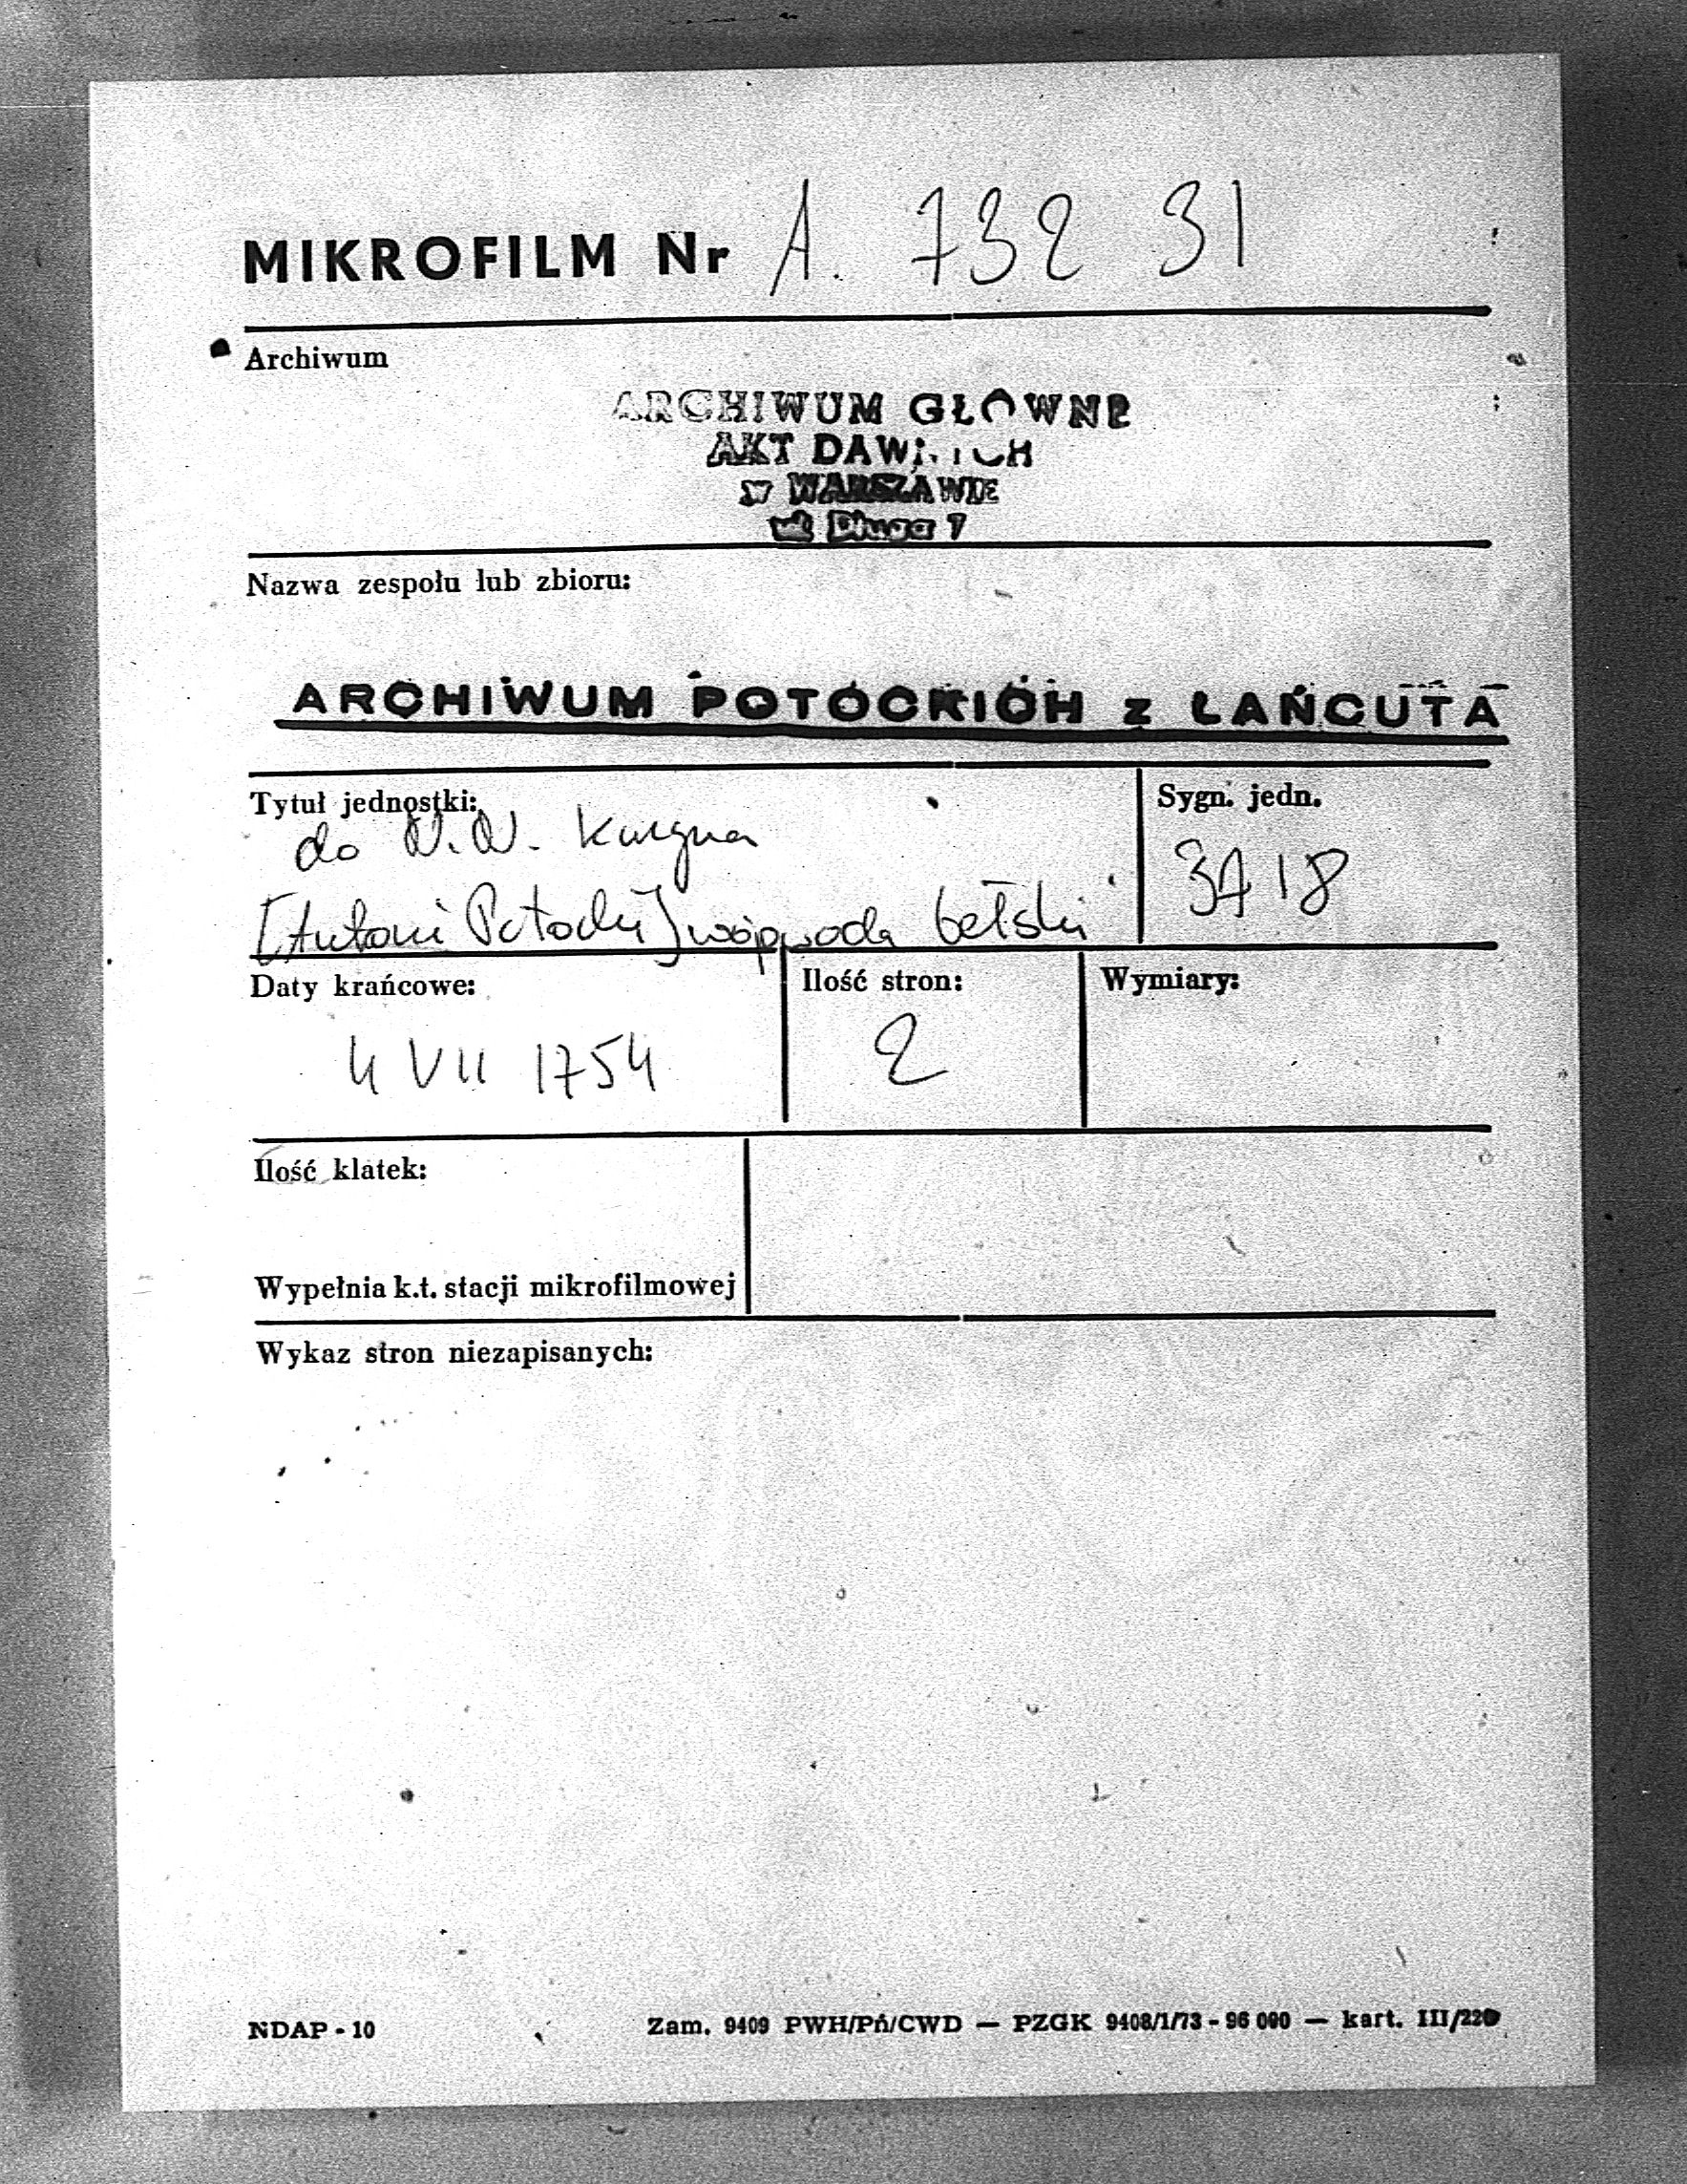 MIKROFILM Nr A. 732 31
Archiwum
ARCHIWUM GŁÓWNE
AKT DAWNYCH
w WARSZAWIE
ul. Długa 7
Nazwa zespołu lub zbioru:
ARCHIWUM POTOCKICH z ŁAŃCUTA
Tytuł jednostki:
Sygn. jedn.
do N.N. kuzyna
[Antoni Potocki] wojewoda bełski
3718
Daty krańcowe:
Ilość stron:
Wymiary:
4 VII 1754
2
Ilość klatek:
Wypełnia k.t. stacji mikrofilmowej
Wykaz stron niezapisanych:
NDAP - 10
Zam. 9409 PWH/Pń/CWD — PZGK 9408/1/73 - 96 000 — kart. III/220